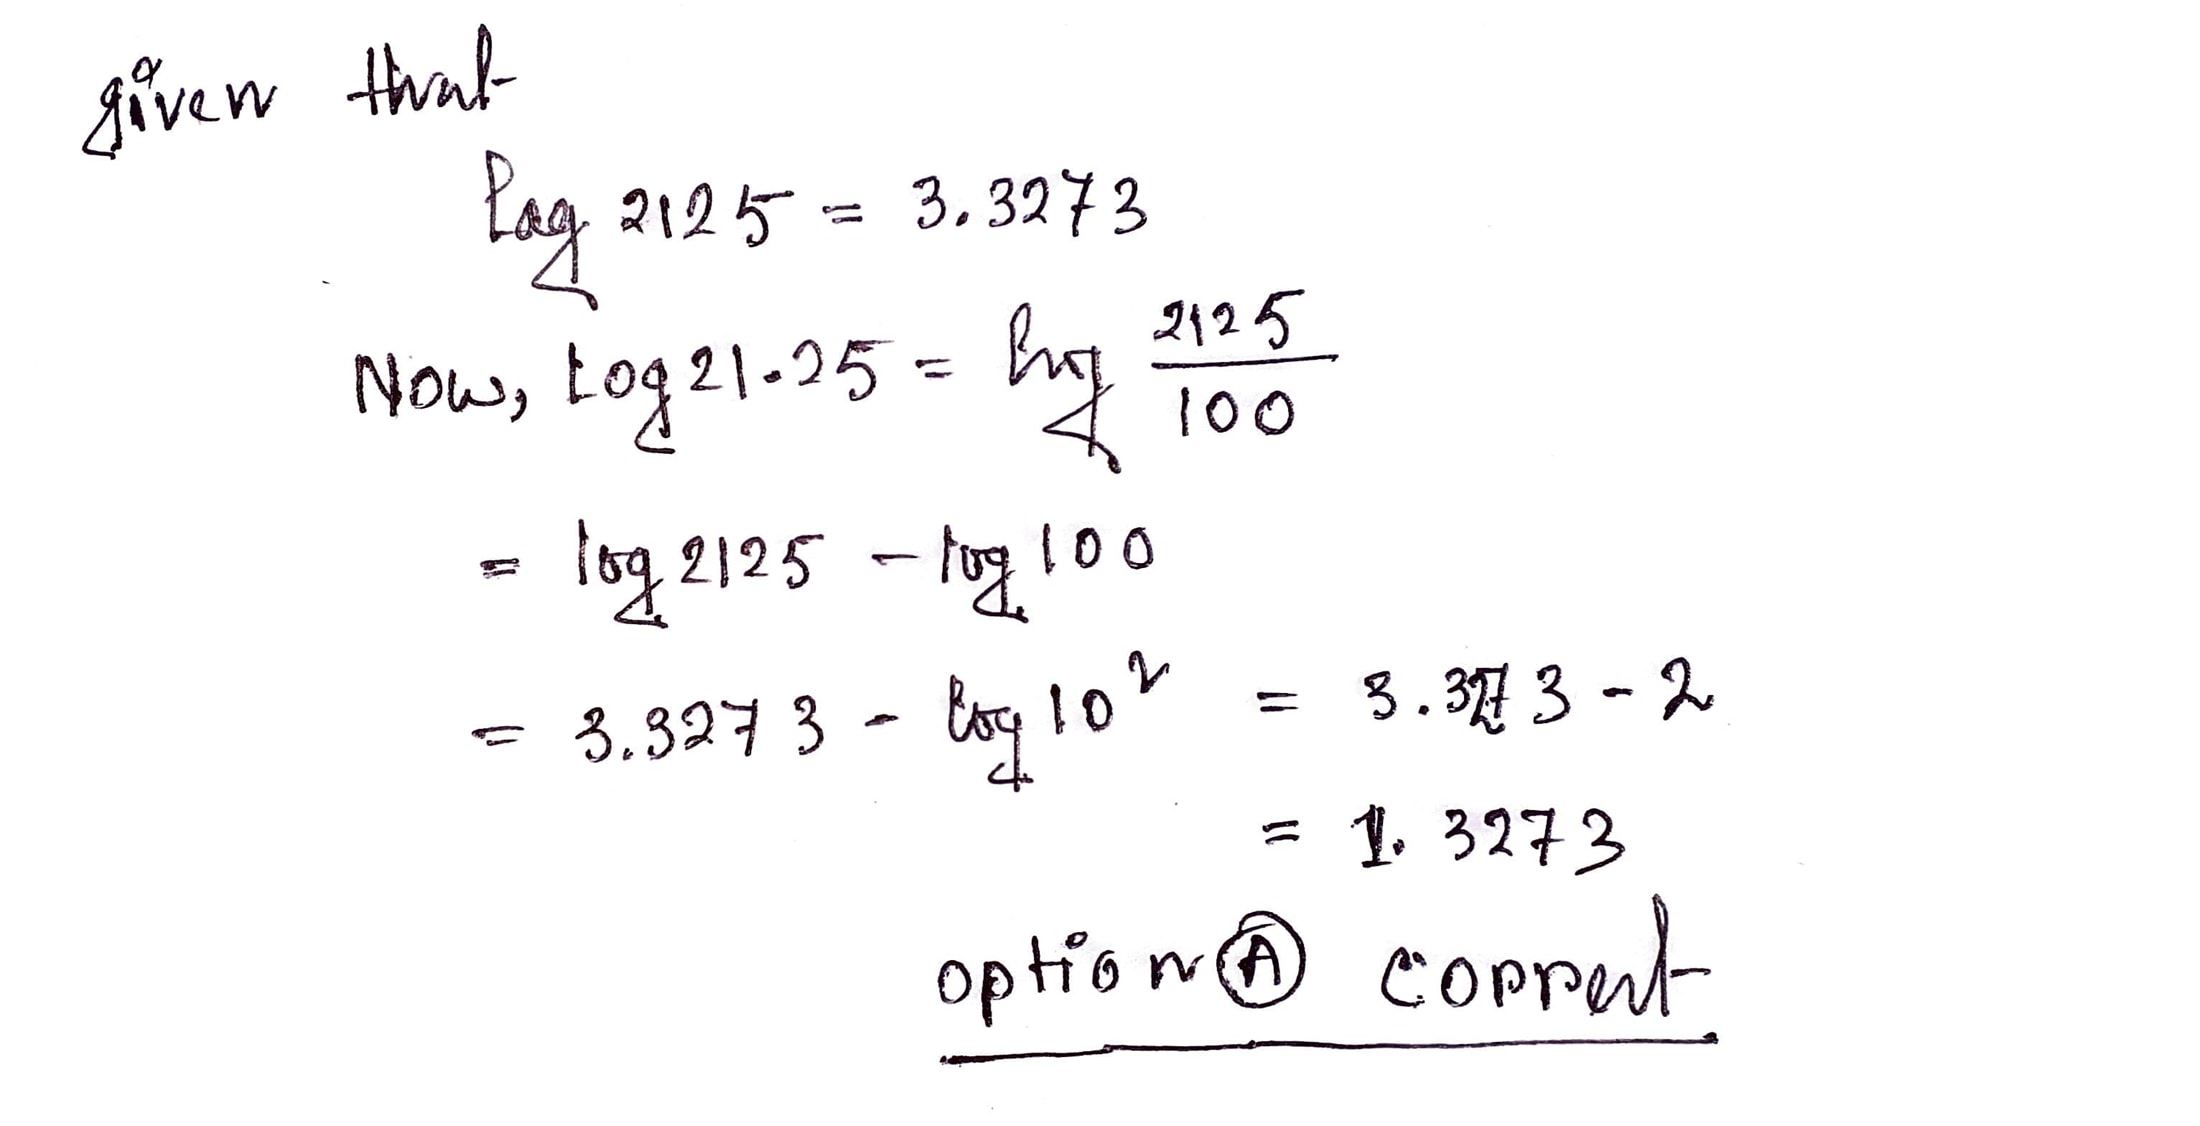 given that
log 2125 = 3.3273
Now, log 21.25 = log 2125/100
= log 2125 - log 100
= 3.3273 - log 10² = 3.3273 - 2
= 1.3273
option Ⓐ correct